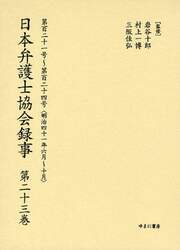 [監修]
岩谷十郎
村上一博
三阪佳弘
第百二十一号～第百二十四号(明治四十一年六月～十月)
日本弁護士協会録事 第二十三巻
ゆまに書房